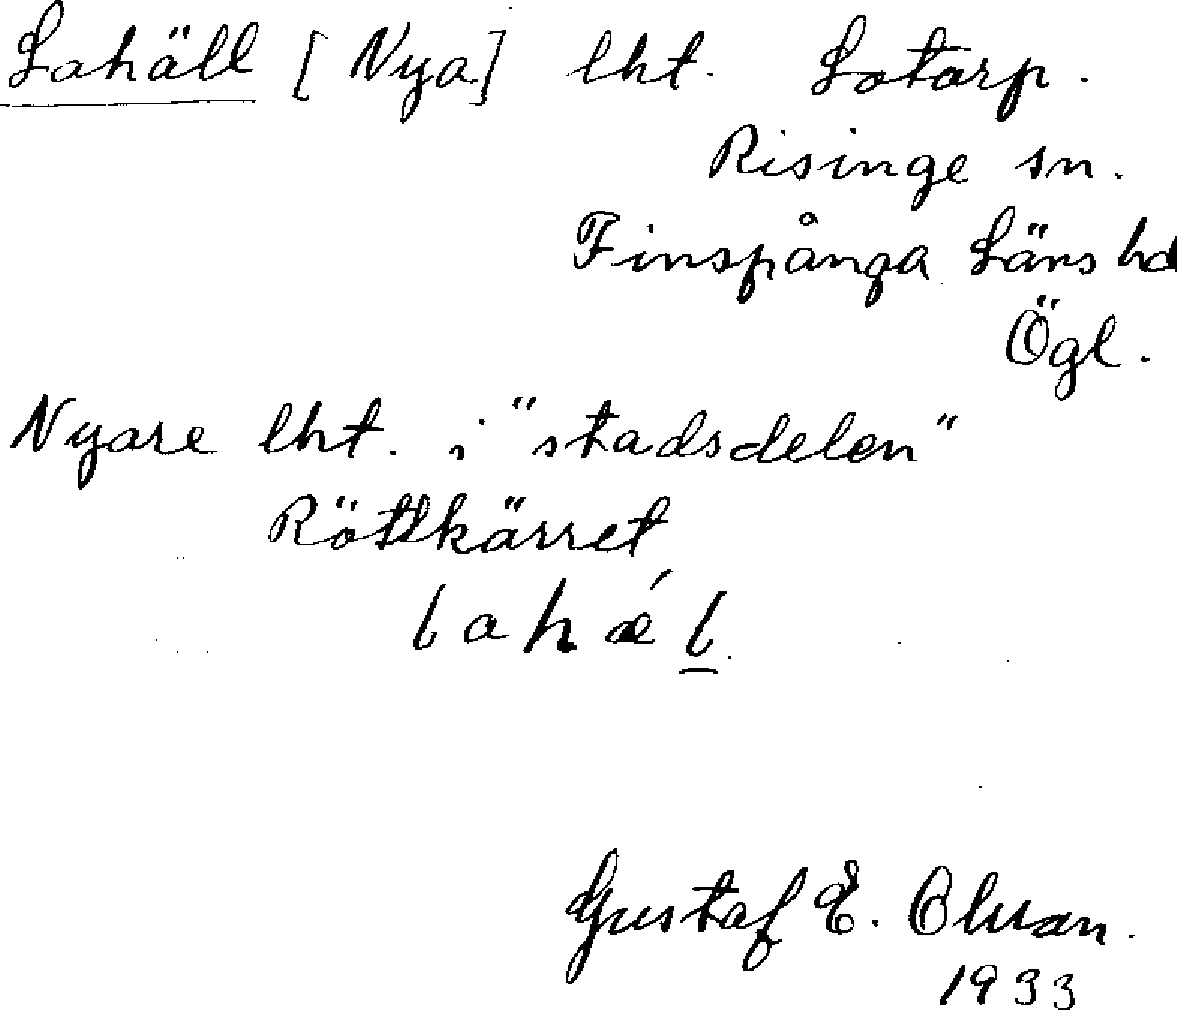 Lahäll [Nya] lht. Lotorp.
Risinge sn.
Finspånga Läns hd
Ögl.
Nyare lht. i "stadsdelen"
Röttkärret
lahǽl
Gustaf E. Olsson.
1933